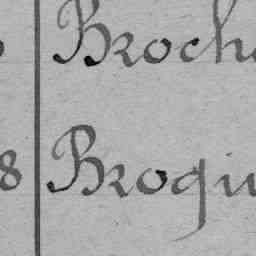 Broch
8 Broqu